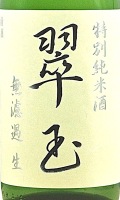 特別純米酒
翠玉
無濾過 生